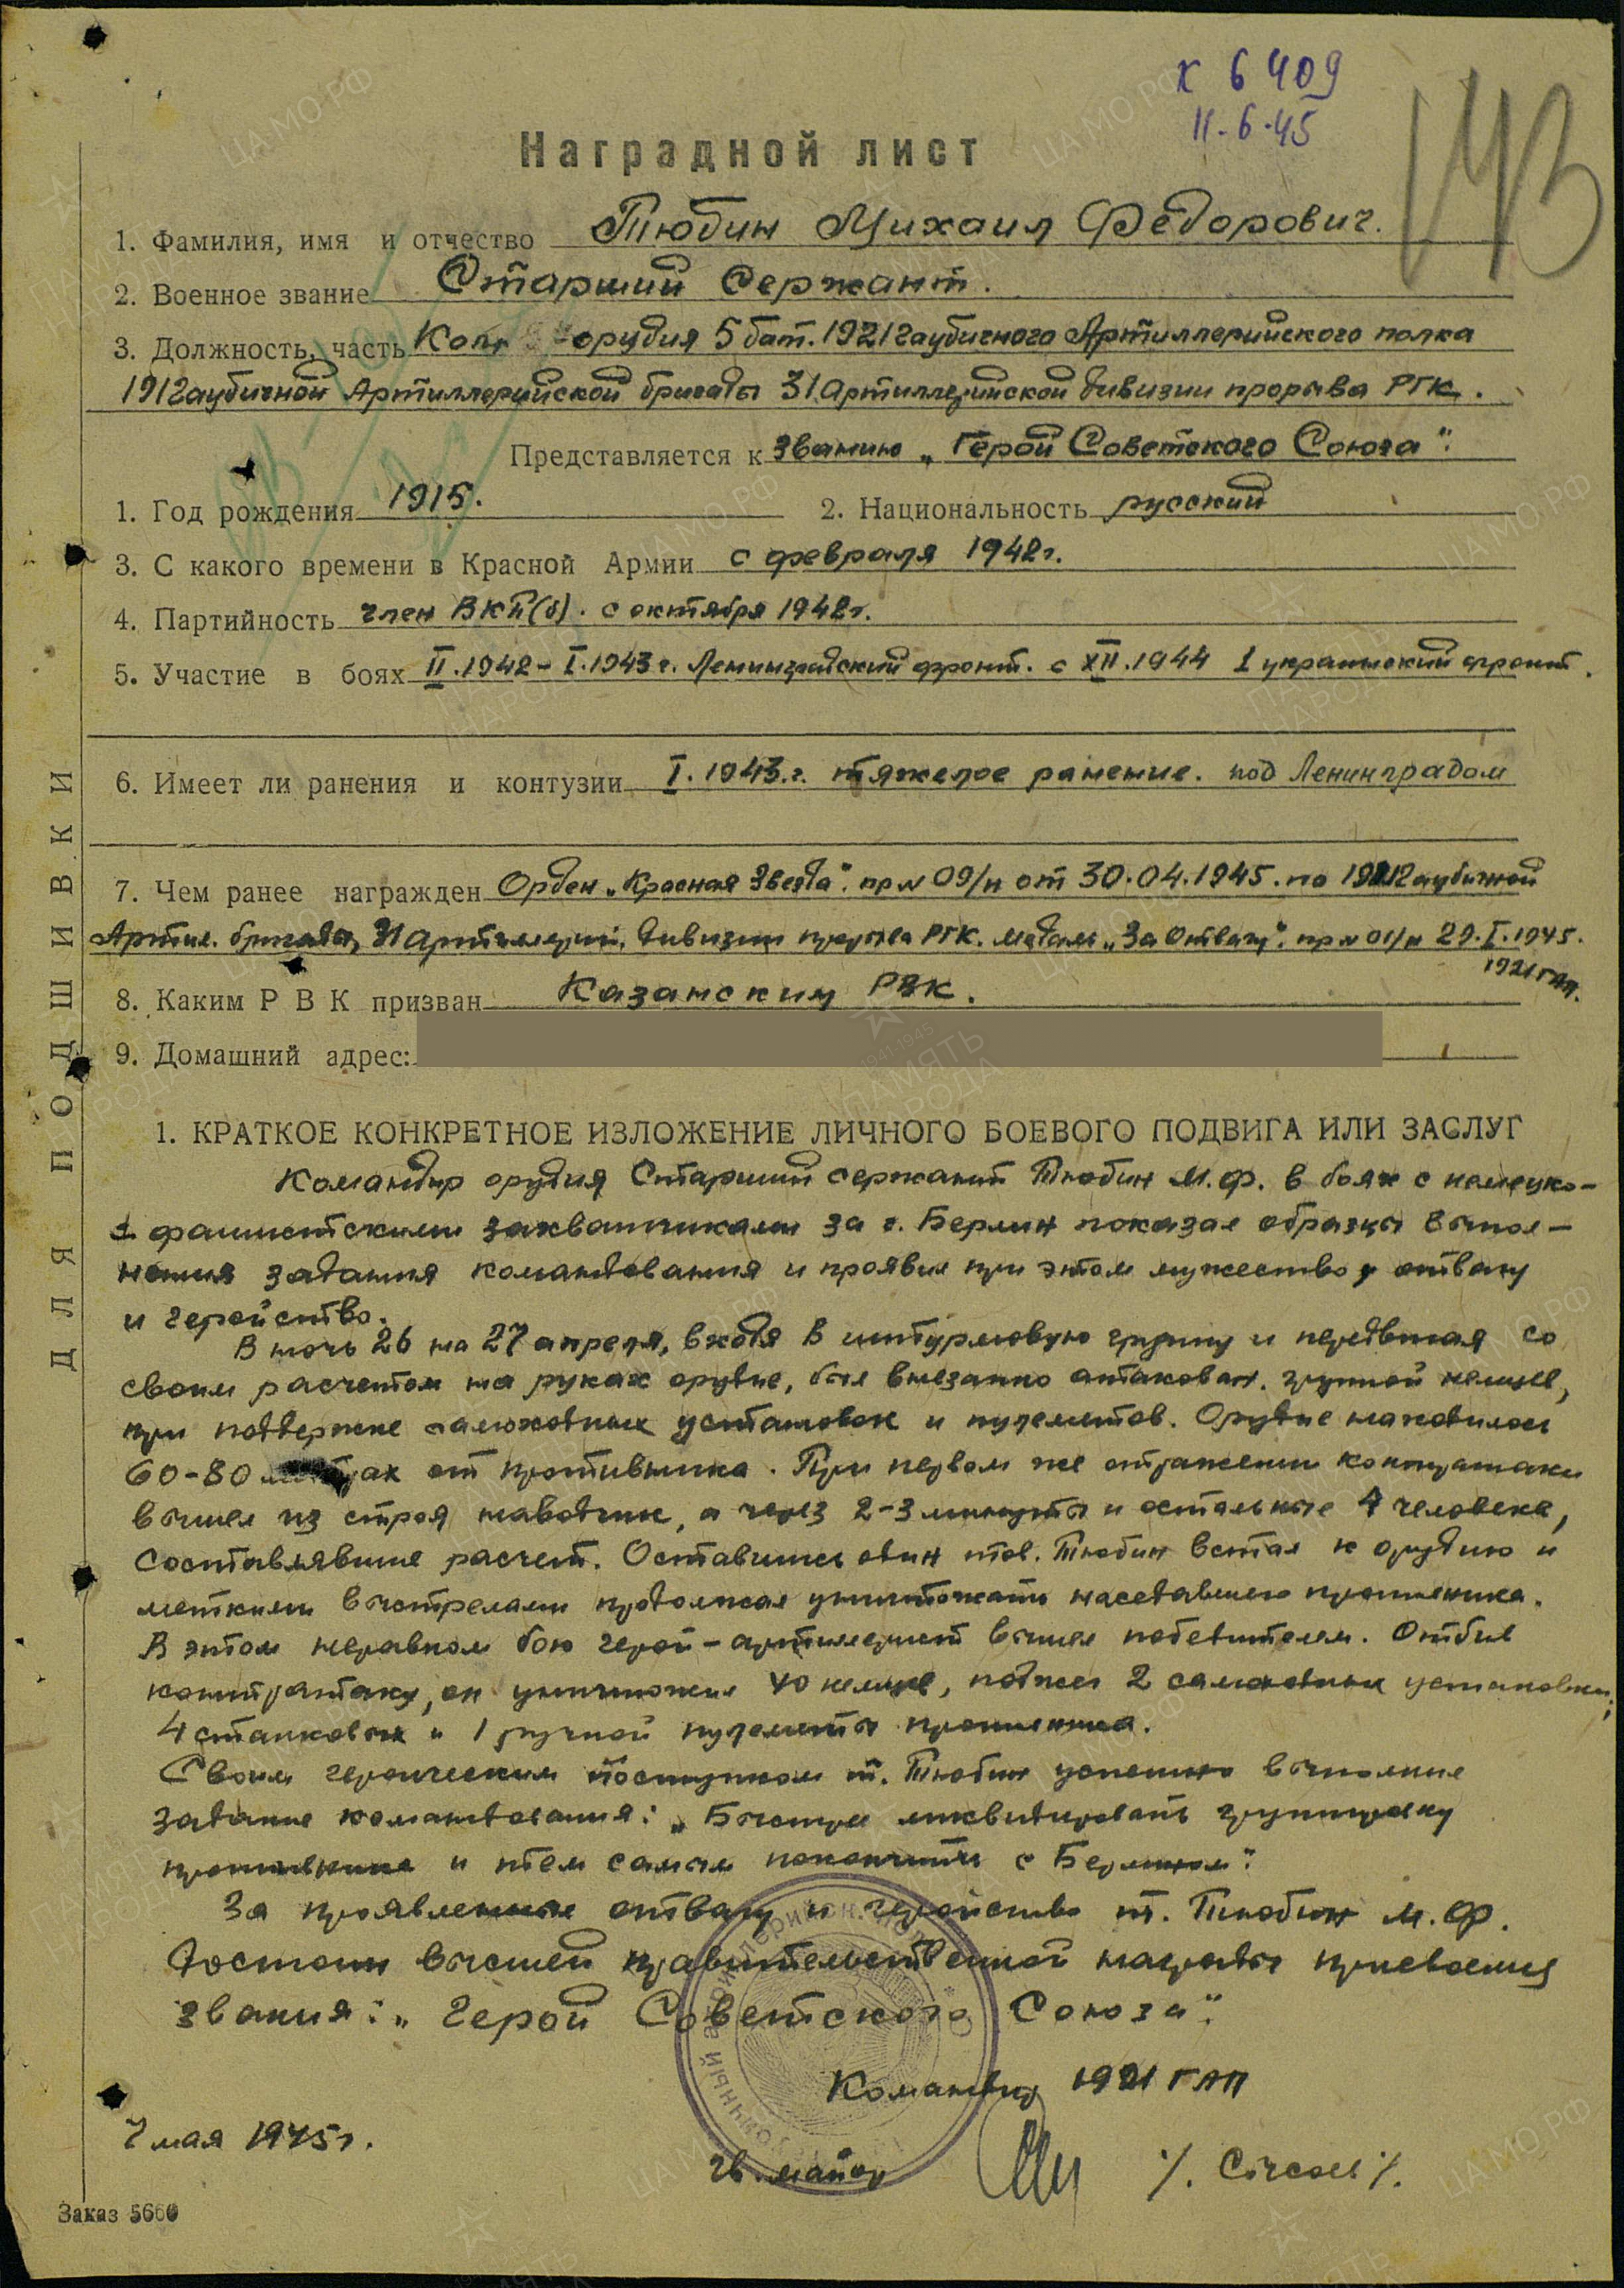 К 6409
11.6.45
143
Наградной лист
1. Фамилия, имя и отчество Тюбин Михаил Федорович.
2. Военное звание Старший Сержант.
3. Должность, часть орудия 5 бат. 1921 гаубичного Артиллерийского полка
191 гаубичной Артиллерийской бригады 31 Артиллерийской дивизии прорыва РГК.
Представляется к званию „Герой Советского Союза".
1. Год рождения 1915. 2. Национальность русский
3. С какого времени в Красной Армии с февраля 1942г.
4. Партийность член ВКП(б). с октября 1942г.
5. Участие в боях II.1942-I.1943г. Ленинградский фронт. с XII.1944 1 украинский фронт.
6. Имеет ли ранения и контузии I.1943.г. тяжелое ранение. под Ленинградом
7. Чем ранее награжден Орден „Красная Звезда". пр № 09/н от 30.04.1945. по гаубичной
Артил. бригады, 31 артиллерий. дивизии прорыва РГК. медаль „За Отвагу". пр № 01/н 29.I.1945.
1921 ГАП.
8. Каким РВК призван Казанским РВК.
9. Домашний адрес:
ДЛЯ ПОДШИВКИ
1. КРАТКОЕ КОНКРЕТНОЕ ИЗЛОЖЕНИЕ ЛИЧНОГО БОЕВОГО ПОДВИГА ИЛИ ЗАСЛУГ
Командир орудия Старший сержант Тюбин М.Ф. в боях с немецко-
фашистскими захватчиками за г. Берлин показал образцы выпол-
нения задания командования и проявил при этом мужество, отвагу
и геройство.
В ночь 26 на 27 апреля, входя в штурмовую группу и передвигая со
своим расчетом на руках орудие, был внезапно атакован. группой немцев,
при поддержке самоходных установок и пулеметов. Орудие находилось
60-80 метрах от противника. При первом же отражении контратаки
вышел из строя наводчик, а через 2-3 минуты и остальные 4 человека,
составлявшие расчет. Оставшись один тов. Тюбин встал к орудию и
меткими выстрелами продолжал уничтожать наседавшего противника.
В этом неравном бою герой-артиллерист вышел победителем. Отбив
контратаку, он уничтожил 40 немцев, поджег 2 самоходных установки,
4 станковых и 1 ручной пулеметы противника.
Своим героическим поступком т. Тюбин успешно выполнил
задание командования: „Быстрее ликвидировать группировку
противника и тем самым покончить с Берлином".
За проявленные отвагу и геройство т. Тюбин М.Ф.
достоин высшей правительственной награды присвоения
звания: „Герой Советского Союза".
Командир 1921 ГАП
7 мая 1945г.
гв. майор
Заказ 5660